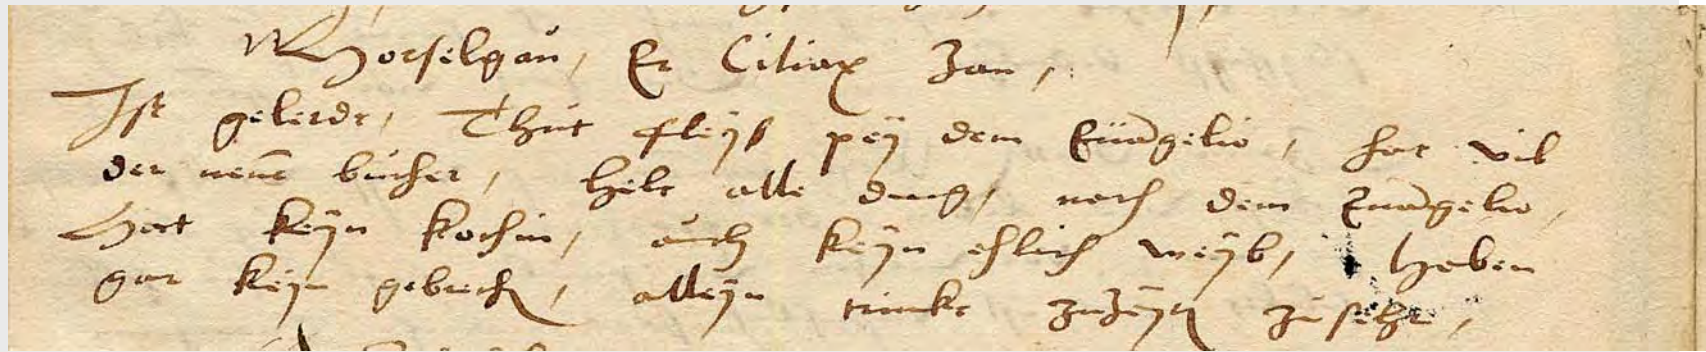 Horselgau, Er Ciliax Zan,
Ist gelerdt, Thut fleyß pey dem Euangelio, hat vil
der neue bucher, helt alle ding, nach dem Euangelio,
Hat keyn kochin, auch keyn ehlich weyb, haben
gar keyn gebrech, alleyn trinkt zuzeyt zusehr,